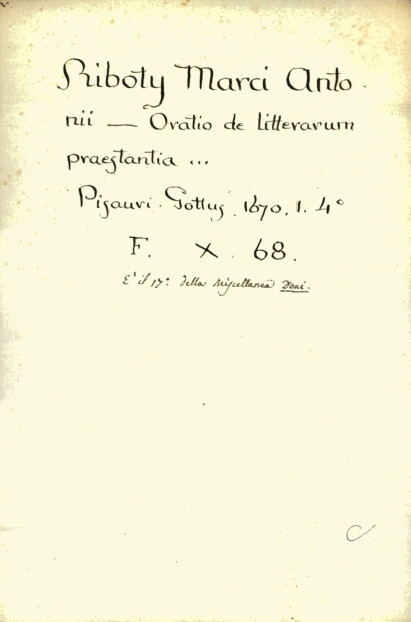 Riboty Marci Anto
nii — Oratio de litterarum
praestantia ...
Pisauri. Gottus, 1670. 1. 4°
F. X. 68.
E' il 17° della Miscellanea Doni.
C